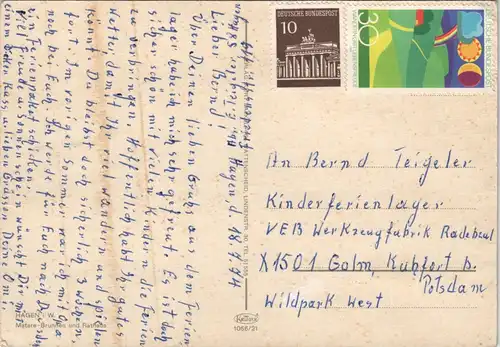 Hagen, d. 18.7.74
Lieber Bernd!
Über Deinen lieben Gruß aus dem Ferien
lager habe ich mich sehr gefreut. Es ist doch
schön mit vielen Kindern die Ferien
verbringen. Hoffentlich habt Ihr gutes
Wetter, damit Ihr viel wandern und spielen
könnt. Du bleibst doch sicherlich 3 Wochen
dort. Im vorigen Sommer war ich mit Opa
bei Euch. Ich werde für Euch nach D.
ein Ferienpaket schicken.
Viel Freude u. Sonnenschein wünscht Dir mit
einem dicken Kuss u. lieben Grüssen Deine Omi.
HAGEN i. W.
Matare-Brunnen und Rathaus
1066/31
DEUTSCHE BUNDESPOST
10
30
An Bernd Teigeler
Kinderferienlager
VEB Werkzeugfabrik Radebeul
X1501 Golm, Kuhfort b.
Potsdam
Wildpark West